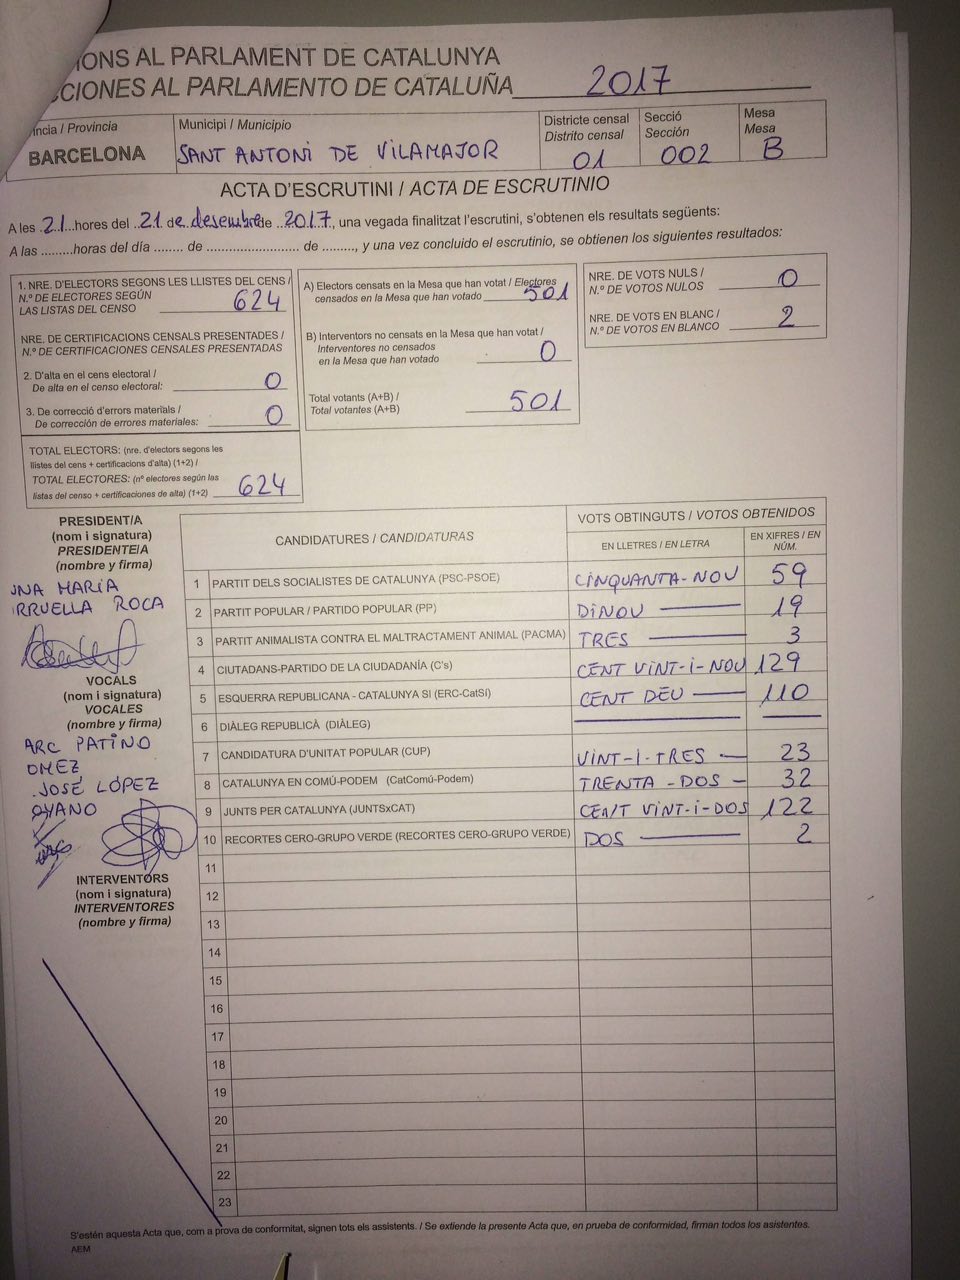 IONS AL PARLAMENT DE CATALUNYA
CCIONES AL PARLAMENTO DE CATALUÑA 2017
incia / Provincia
BARCELONA
Municipi / Municipio
SANT ANTONI DE VILAMAJOR
Districte censal
Distrito censal
01
Secció
Sección
002
Mesa
Mesa
B
ACTA D'ESCRUTINI / ACTA DE ESCRUTINIO
A les .21...hores del ..21 de desembre de .2017., una vegada finalitzat l'escrutini, s'obtenen els resultats següents:
A las .........horas del día ........ de ......................... de ........., y una vez concluido el escrutinio, se obtienen los siguientes resultados:
1. NRE. D'ELECTORS SEGONS LES LLISTES DEL CENS /
N.º DE ELECTORES SEGÚN
LAS LISTAS DEL CENSO 624
NRE. DE CERTIFICACIONS CENSALS PRESENTADES /
N.º DE CERTIFICACIONES CENSALES PRESENTADAS
2. D'alta en el cens electoral /
De alta en el censo electoral: 0
3. De correcció d'errors materials /
De corrección de errores materiales: 0
TOTAL ELECTORS: (nre. d'electors segons les
llistes del cens + certificacions d'alta) (1+2) /
TOTAL ELECTORES: (nº electores según las
listas del censo + certificaciones de alta) (1+2) 624
A) Electors censats en la Mesa que han votat / Electores
censados en la Mesa que han votado 501
B) Interventors no censats en la Mesa que han votat /
Interventores no censados
en la Mesa que han votado 0
Total votants (A+B) /
Total votantes (A+B) 501
NRE. DE VOTS NULS /
N.º DE VOTOS NULOS 0
NRE. DE VOTS EN BLANC /
N.º DE VOTOS EN BLANCO 2
PRESIDENT/A
(nom i signatura)
PRESIDENTE/A
(nombre y firma)
UNA MARIA
RRUELLA ROCA
VOCALS
(nom i signatura)
VOCALES
(nombre y firma)
ARC PATIÑO
OMEZ
JOSÉ LÓPEZ
OYANO
INTERVENTORS
(nom i signatura)
INTERVENTORES
(nombre y firma)
CANDIDATURES / CANDIDATURAS
VOTS OBTINGUTS / VOTOS OBTENIDOS
EN LLETRES / EN LETRA
EN XIFRES / EN NÚM.
1 PARTIT DELS SOCIALISTES DE CATALUNYA (PSC-PSOE) CINQUANTA-NOU 59
2 PARTIT POPULAR / PARTIDO POPULAR (PP) DINOU 19
3 PARTIT ANIMALISTA CONTRA EL MALTRACTAMENT ANIMAL (PACMA) TRES 3
4 CIUTADANS-PARTIDO DE LA CIUDADANÍA (C's) CENT VINT-I-NOU 129
5 ESQUERRA REPUBLICANA - CATALUNYA SI (ERC-CatSí) CENT DEU 110
6 DIÀLEG REPUBLICÀ (DIÀLEG)
7 CANDIDATURA D'UNITAT POPULAR (CUP) VINT-I-TRES 23
8 CATALUNYA EN COMÚ-PODEM (CatComú-Podem) TRENTA-DOS 32
9 JUNTS PER CATALUNYA (JUNTSxCAT) CENT VINT-I-DOS 122
10 RECORTES CERO-GRUPO VERDE (RECORTES CERO-GRUPO VERDE) DOS 2
11
12
13
14
15
16
17
18
19
20
21
22
23
S'estén aquesta Acta que, com a prova de conformitat, signen tots els assistents. / Se extiende la presente Acta que, en prueba de conformidad, firman todos los asistentes.
AEM